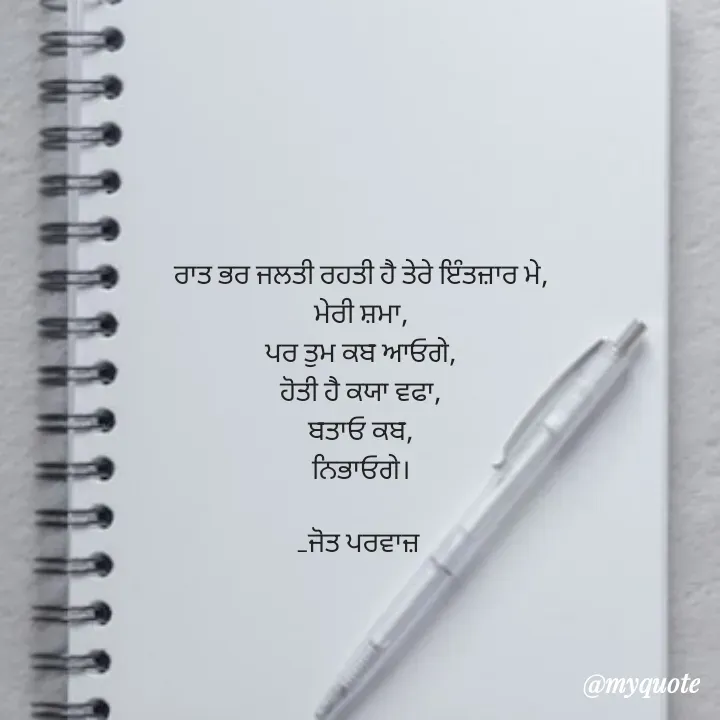 ਰਾਤ ਭਰ ਜਲਤੀ ਰਹਤੀ ਹੈ ਤੇਰੇ ਇੰਤਜ਼ਾਰ ਮੇ,
ਮੇਰੀ ਸ਼ਮਾ,
ਪਰ ਤੁਮ ਕਬ ਆਓਗੇ,
ਹੋਤੀ ਹੈ ਕਯਾ ਵਫਾ,
ਬਤਾਓ ਕਬ,
ਨਿਭਾਓਗੇ।
_ਜੋਤ ਪਰਵਾਜ਼
@myquote